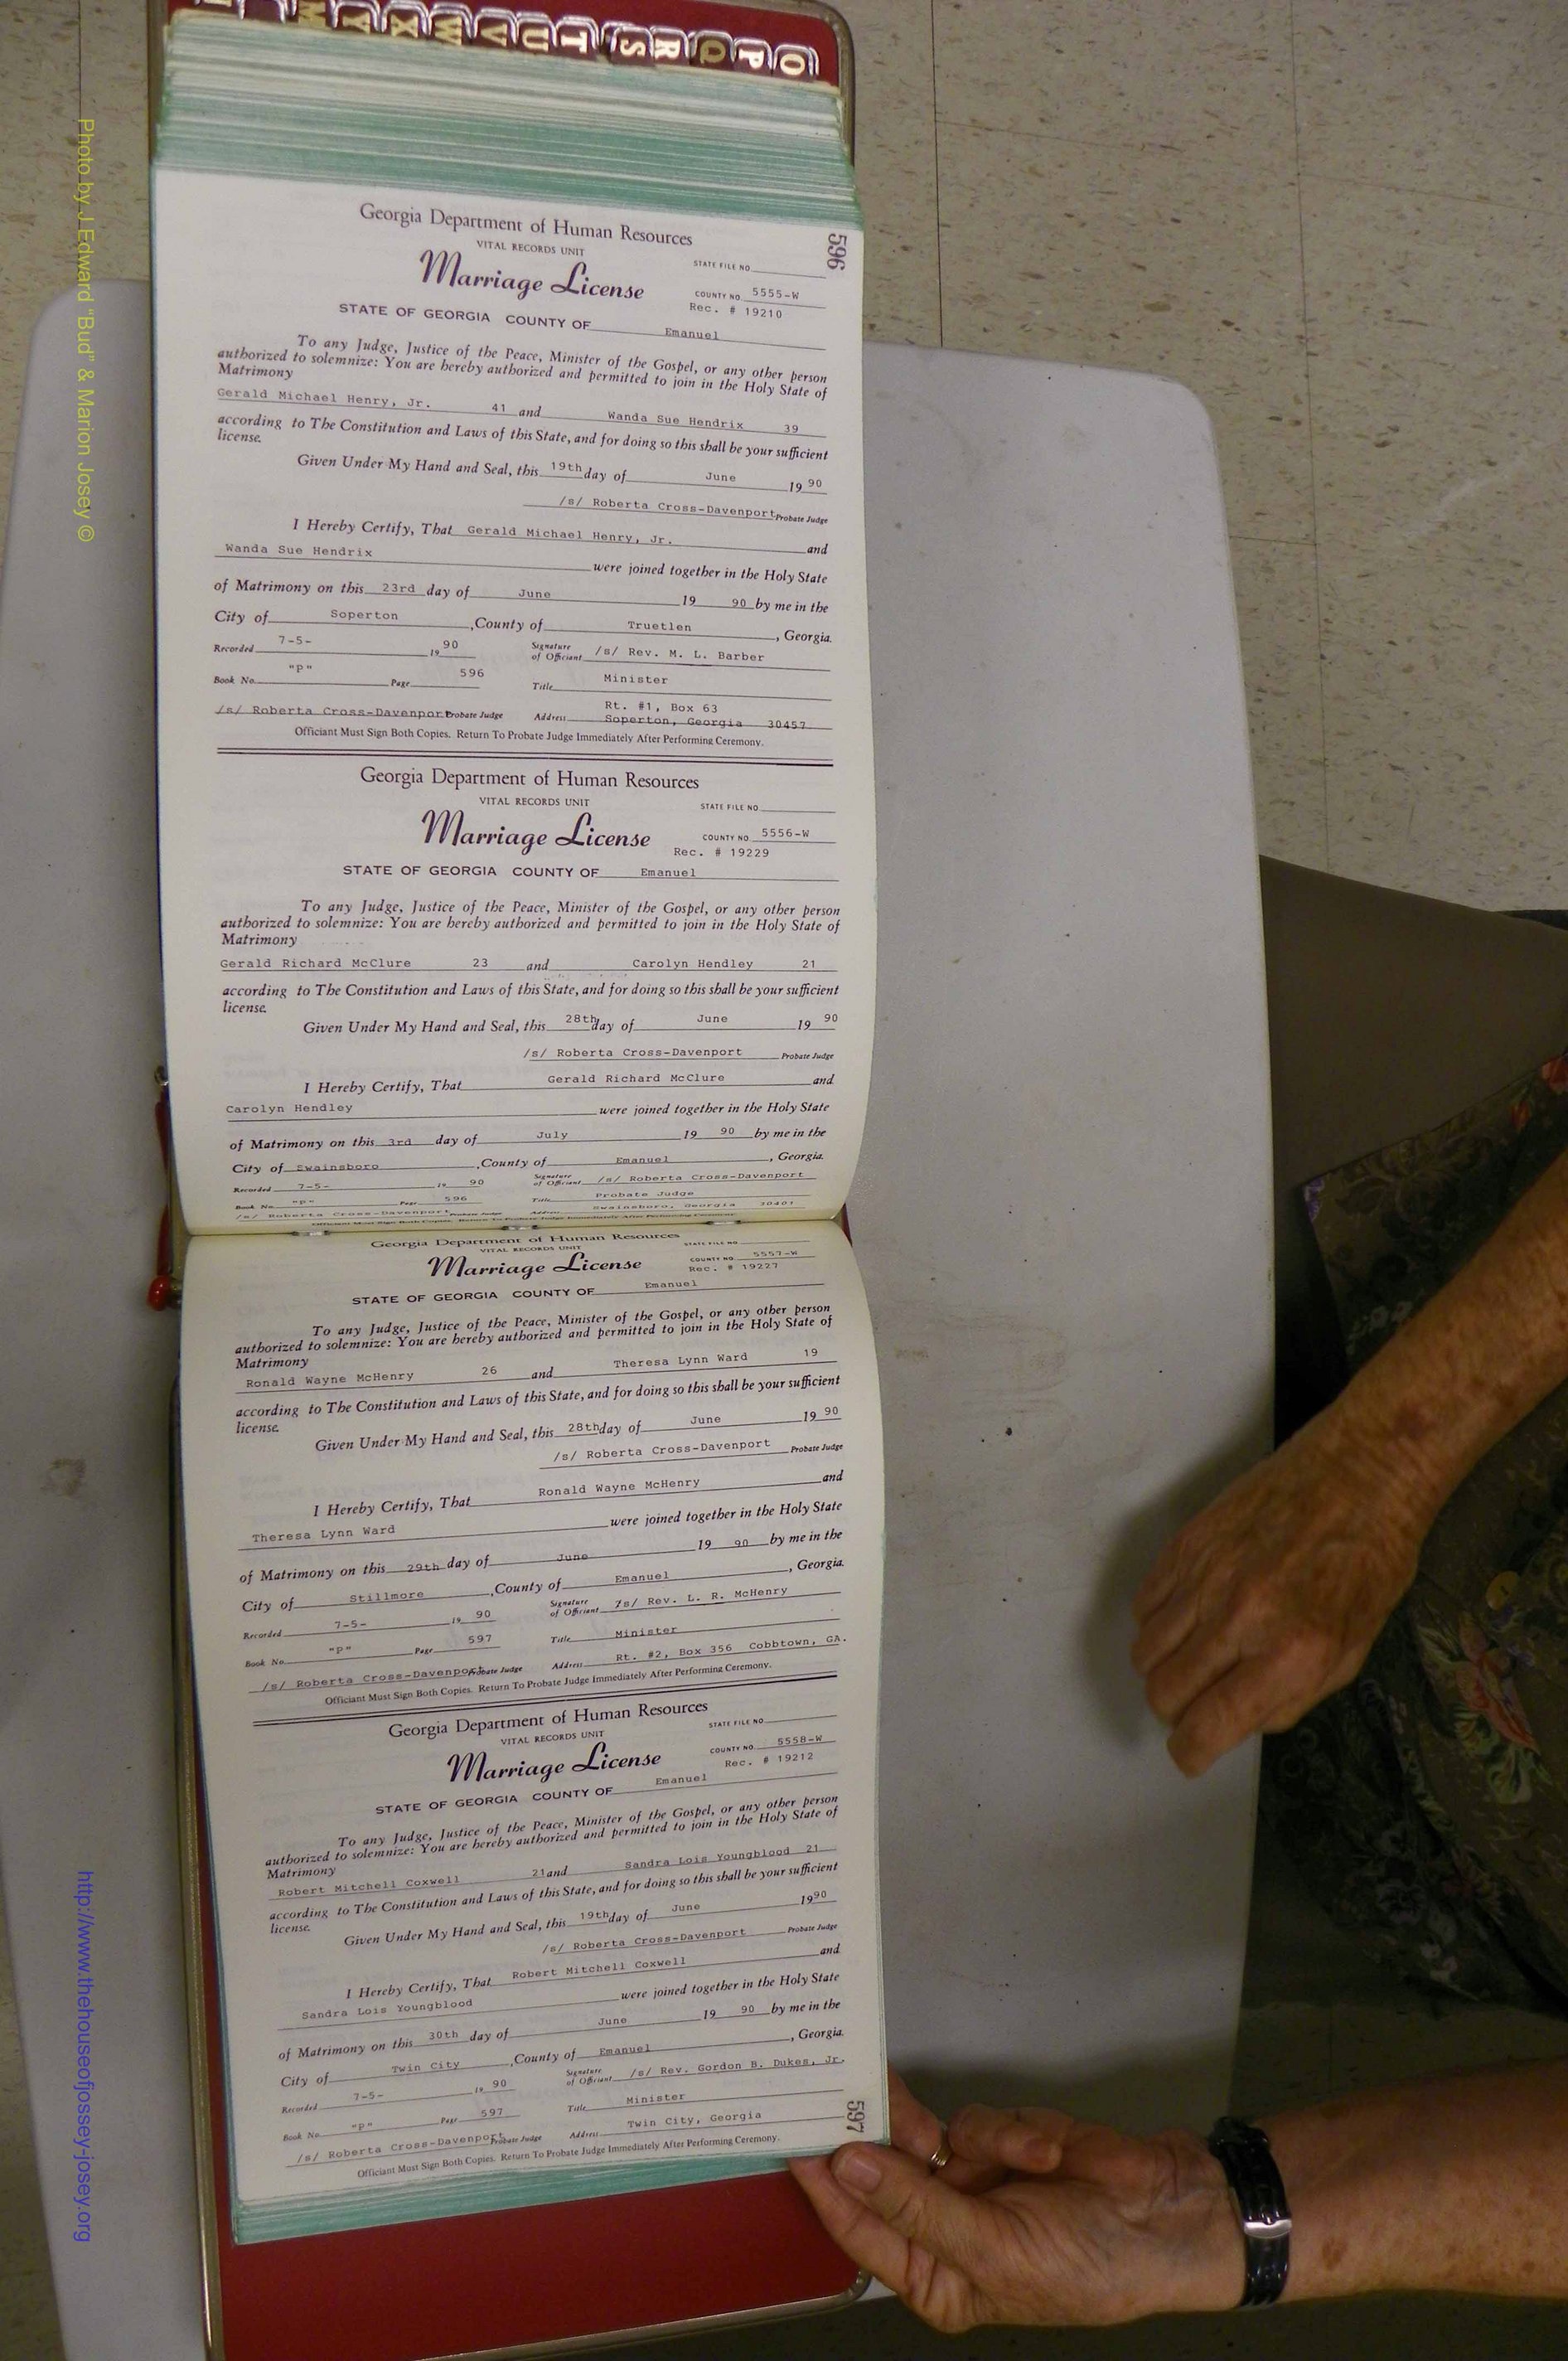 W X Y M
O P Q R S T U V
596
Georgia Department of Human Resources
VITAL RECORDS UNIT
STATE FILE NO.
Marriage License
COUNTY NO. 5555-W
Rec. # 19210
STATE OF GEORGIA COUNTY OF Emanuel
To any Judge, Justice of the Peace, Minister of the Gospel, or any other person
authorized to solemnize: You are hereby authorized and permitted to join in the Holy State of
Matrimony
Gerald Michael Henry, Jr. 41 and Wanda Sue Hendrix 39
according to The Constitution and Laws of this State, and for doing so this shall be your sufficient
license.
Given Under My Hand and Seal, this 19th day of June 19 90
/s/ Roberta Cross-Davenport Probate Judge
I Hereby Certify, That Gerald Michael Henry, Jr. and
Wanda Sue Hendrix were joined together in the Holy State
of Matrimony on this 23rd day of June 19 90 by me in the
City of Soperton, County of Truetlen, Georgia.
Recorded 7-5- 19 90 Signature of Officiant /s/ Rev. M. L. Barber
Book No. "P" Page 596 Title Minister
Rt. #1, Box 63
/s/ Roberta Cross-Davenport Probate Judge Address Soperton, Georgia 30457
Officiant Must Sign Both Copies. Return To Probate Judge Immediately After Performing Ceremony.
Georgia Department of Human Resources
VITAL RECORDS UNIT
STATE FILE NO.
Marriage License
COUNTY NO. 5556-W
Rec. # 19229
STATE OF GEORGIA COUNTY OF Emanuel
To any Judge, Justice of the Peace, Minister of the Gospel, or any other person
authorized to solemnize: You are hereby authorized and permitted to join in the Holy State of
Matrimony
Gerald Richard McClure 23 and Carolyn Hendley 21
according to The Constitution and Laws of this State, and for doing so this shall be your sufficient
license.
Given Under My Hand and Seal, this 28th day of June 19 90
/s/ Roberta Cross-Davenport Probate Judge
I Hereby Certify, That Gerald Richard McClure and
Carolyn Hendley were joined together in the Holy State
of Matrimony on this 3rd day of July 19 90 by me in the
City of Swainsboro, County of Emanuel, Georgia.
Recorded 7-5- 19 90 Signature of Officiant /s/ Roberta Cross-Davenport
Book No. "P" Page 596 Title Probate Judge
/s/ Roberta Cross-Davenport Probate Judge Address Swainsboro, Georgia 30401
Officiant Must Sign Both Copies. Return To Probate Judge Immediately After Performing Ceremony.
Georgia Department of Human Resources
VITAL RECORDS UNIT
STATE FILE NO.
Marriage License
COUNTY NO. 5557-W
Rec. # 19227
STATE OF GEORGIA COUNTY OF Emanuel
To any Judge, Justice of the Peace, Minister of the Gospel, or any other person
authorized to solemnize: You are hereby authorized and permitted to join in the Holy State of
Matrimony
Ronald Wayne McHenry 26 and Theresa Lynn Ward 19
according to The Constitution and Laws of this State, and for doing so this shall be your sufficient
license.
Given Under My Hand and Seal, this 28th day of June 19 90
/s/ Roberta Cross-Davenport Probate Judge
I Hereby Certify, That Ronald Wayne McHenry and
Theresa Lynn Ward were joined together in the Holy State
of Matrimony on this 29th day of June 19 90 by me in the
City of Stillmore, County of Emanuel, Georgia.
Recorded 7-5- 19 90 Signature of Officiant /s/ Rev. L. R. McHenry
Book No. "P" Page 597 Title Minister
/s/ Roberta Cross-Davenport Probate Judge Address Rt. #2, Box 356 Cobbtown, GA.
Officiant Must Sign Both Copies. Return To Probate Judge Immediately After Performing Ceremony.
Georgia Department of Human Resources
VITAL RECORDS UNIT
STATE FILE NO.
Marriage License
COUNTY NO. 5558-W
Rec. # 19212
STATE OF GEORGIA COUNTY OF Emanuel
To any Judge, Justice of the Peace, Minister of the Gospel, or any other person
authorized to solemnize: You are hereby authorized and permitted to join in the Holy State of
Matrimony
Robert Mitchell Coxwell 21 and Sandra Lois Youngblood 21
according to The Constitution and Laws of this State, and for doing so this shall be your sufficient
license.
Given Under My Hand and Seal, this 19th day of June 19 90
/s/ Roberta Cross-Davenport Probate Judge
I Hereby Certify, That Robert Mitchell Coxwell and
Sandra Lois Youngblood were joined together in the Holy State
of Matrimony on this 30th day of June 19 90 by me in the
City of Twin City, County of Emanuel, Georgia.
Recorded 7-5- 19 90 Signature of Officiant /s/ Rev. Gordon B. Dukes, Jr.
Book No. "P" Page 597 Title Minister
/s/ Roberta Cross-Davenport Probate Judge Address Twin City, Georgia
Officiant Must Sign Both Copies. Return To Probate Judge Immediately After Performing Ceremony.
597
Photo by J Edward "Bud" & Marion Josey ©
http://www.thehouseofjossey-josey.org